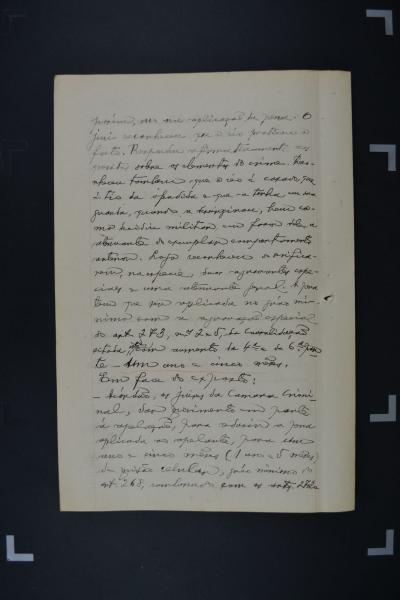 porém, na sua aplicação da pena. O
juri reconheceu que o réo praticou o
facto. Respondeu affirmativamente os
quesitos sobre os elementos do crime. Reco-
nheceu tambem que o réo é casado, que
é tio da offendida e que a tinha em sua
guarda, quando a , bem co-
mo haveria militar em favor delle a
attenuante do exemplar comportamento
anterior. Logo reconheceu se verifica-
rem, na especie, duas aggravantes espe-
ciaes e uma attenuante geral. A pena
tem que ser applicada no gráo mi-
nimo com a aggravação especial
do art. 273, nos 2 e 5, da Consolidação
citada, com augmento da 4ª e da 6ª par-
te – um anno e cinco mêses.
Em face do exposto:
– Accordão, os juizes da Camara Crimi-
nal, dar provimento em parte
á appellação, para reduzir a pena
applicada ao appelante, para um
anno e cinco mêses (1 anno e 5 mêses)
de prisão cellular, gráo minimo do
art. 268, combinado com os arts. 273